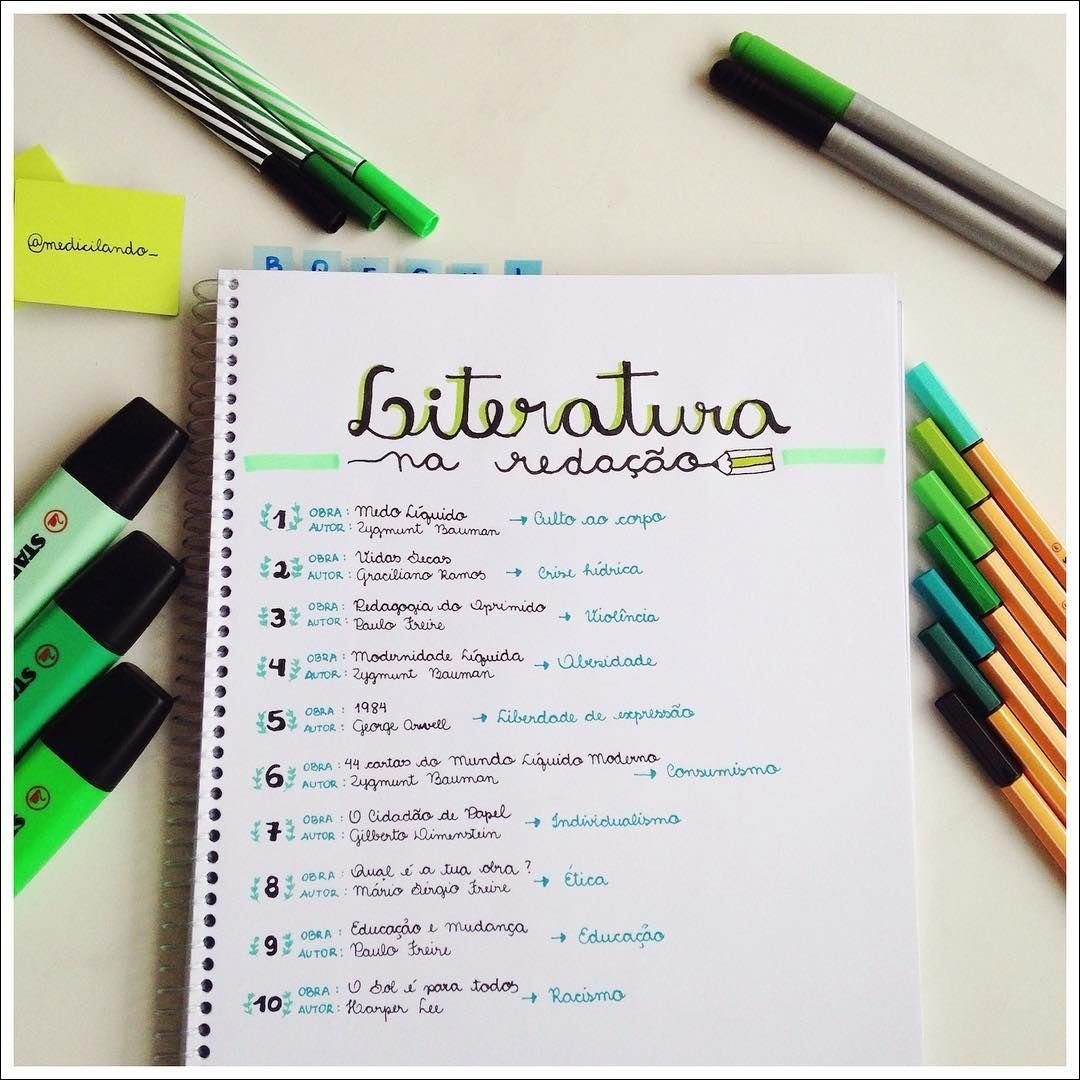 @medicilando_
Literatura
na redação
1 OBRA: Medo Líquido
AUTOR: Zygmunt Bauman → Culto ao corpo
2 OBRA: Vidas Secas
AUTOR: Graciliano Ramos → Crise hídrica
3 OBRA: Pedagogia do Oprimido
AUTOR: Paulo Freire → Violência
4 OBRA: Modernidade Líquida
AUTOR: Zygmunt Bauman → Obesidade
5 OBRA: 1984
AUTOR: George Orwell → Liberdade de expressão
6 OBRA: 44 cartas do Mundo Líquido Moderno
AUTOR: Zygmunt Bauman → Consumismo
7 OBRA: O Cidadão de Papel
AUTOR: Gilberto Dimenstein → Individualismo
8 OBRA: Qual é a tua obra?
AUTOR: Mário Sérgio Freire → Ética
9 OBRA: Educação e Mudança
AUTOR: Paulo Freire → Educação
10 OBRA: O Sol é para todos
AUTOR: Harper Lee → Racismo